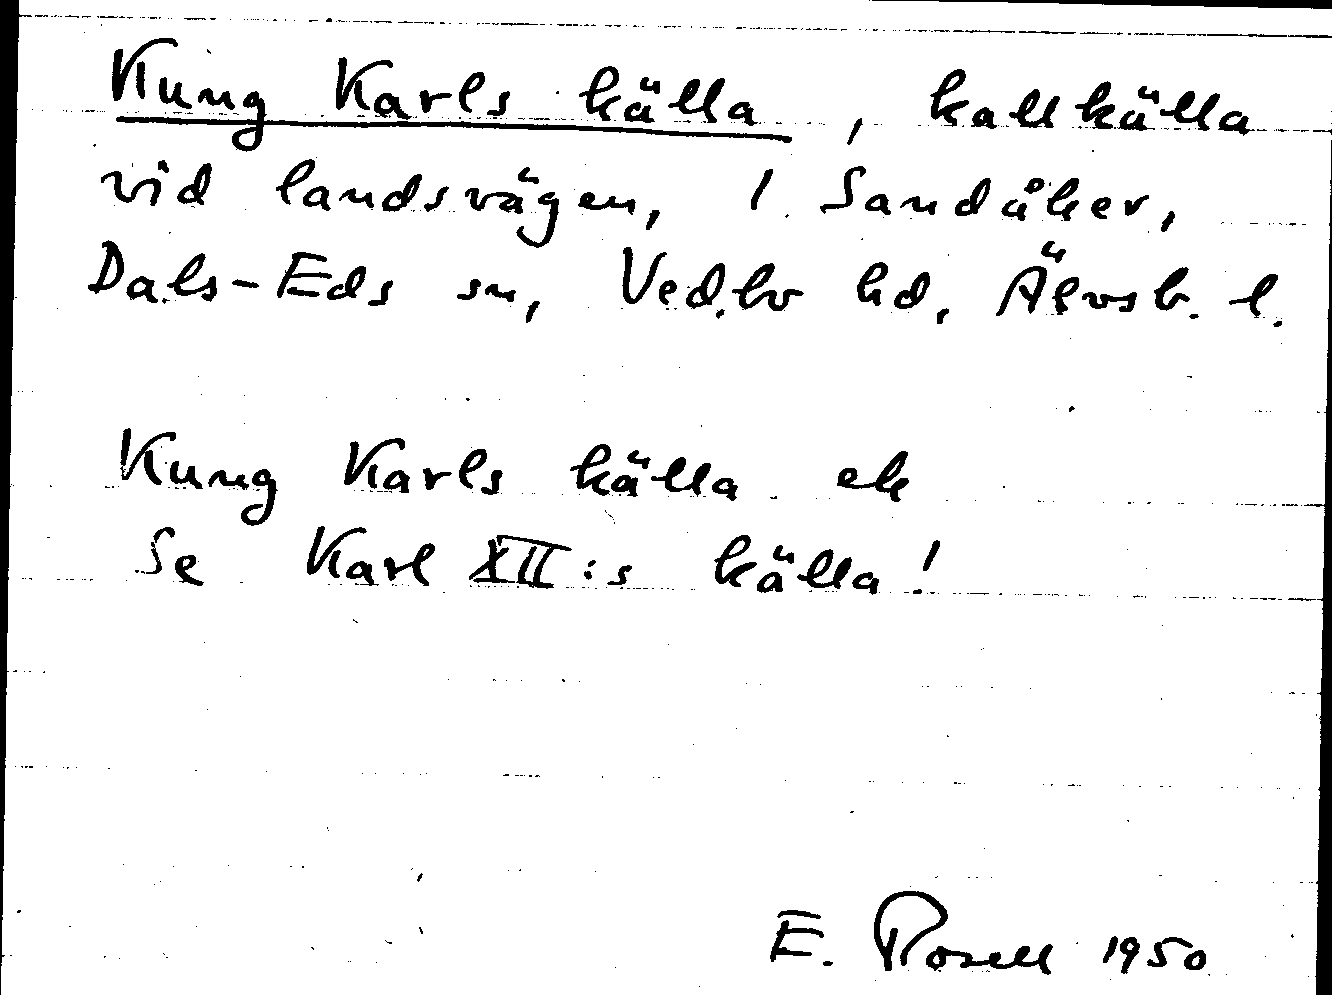 Kung Karls källa, kallkälla
vid landsvägen, 1 Sandåker,
Dals-Eds sn, Vedbo hd, Älvsb. l.
Kung Karls källa ek
Se Karl XII:s källa!
E. Rosell 1950